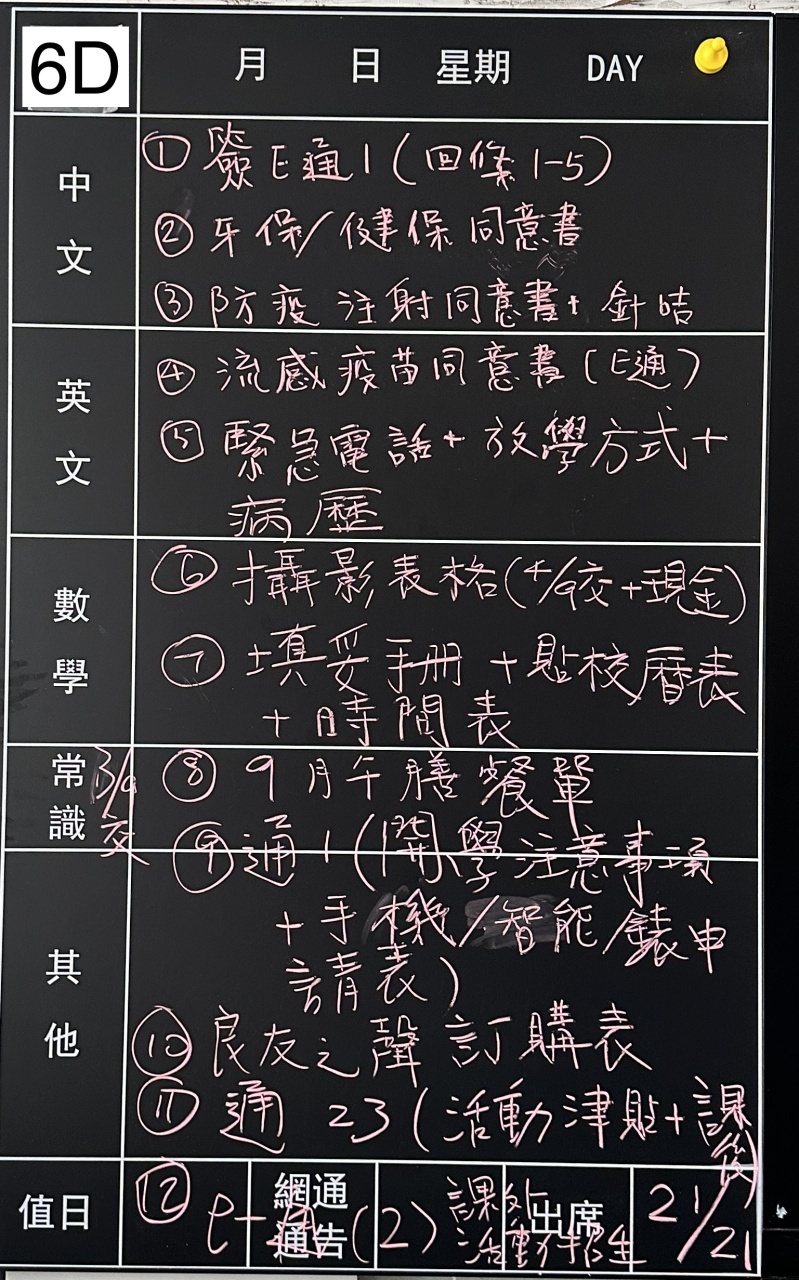 6D 月 日 星期 DAY
中文
① 簽E通1(回條1-5)
② 牙保/健保同意書
③ 防疫注射同意書+針咭
英文
④ 流感疫苗同意書(E通)
⑤ 緊急電話+放學方式+
病歷
數學
⑥ 攝影表格(4/9交+現金)
⑦ 填妥手冊+貼校曆表
+時間表
常識
3/9
交
⑧ 9月午膳餐單
⑨ 通1(開學注意事項
+手機/智能錶申
請表)
其他
⑩ 良友之聲訂購表
⑪ 通23(活動津貼+課
後)
值日
⑫ e-
網通
通告
(2)
課外
活動招生
出席
21/21